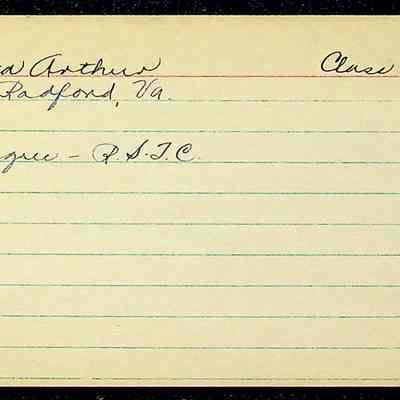 Arthur Class
Radford, Va.
gree - R.S.T.C.